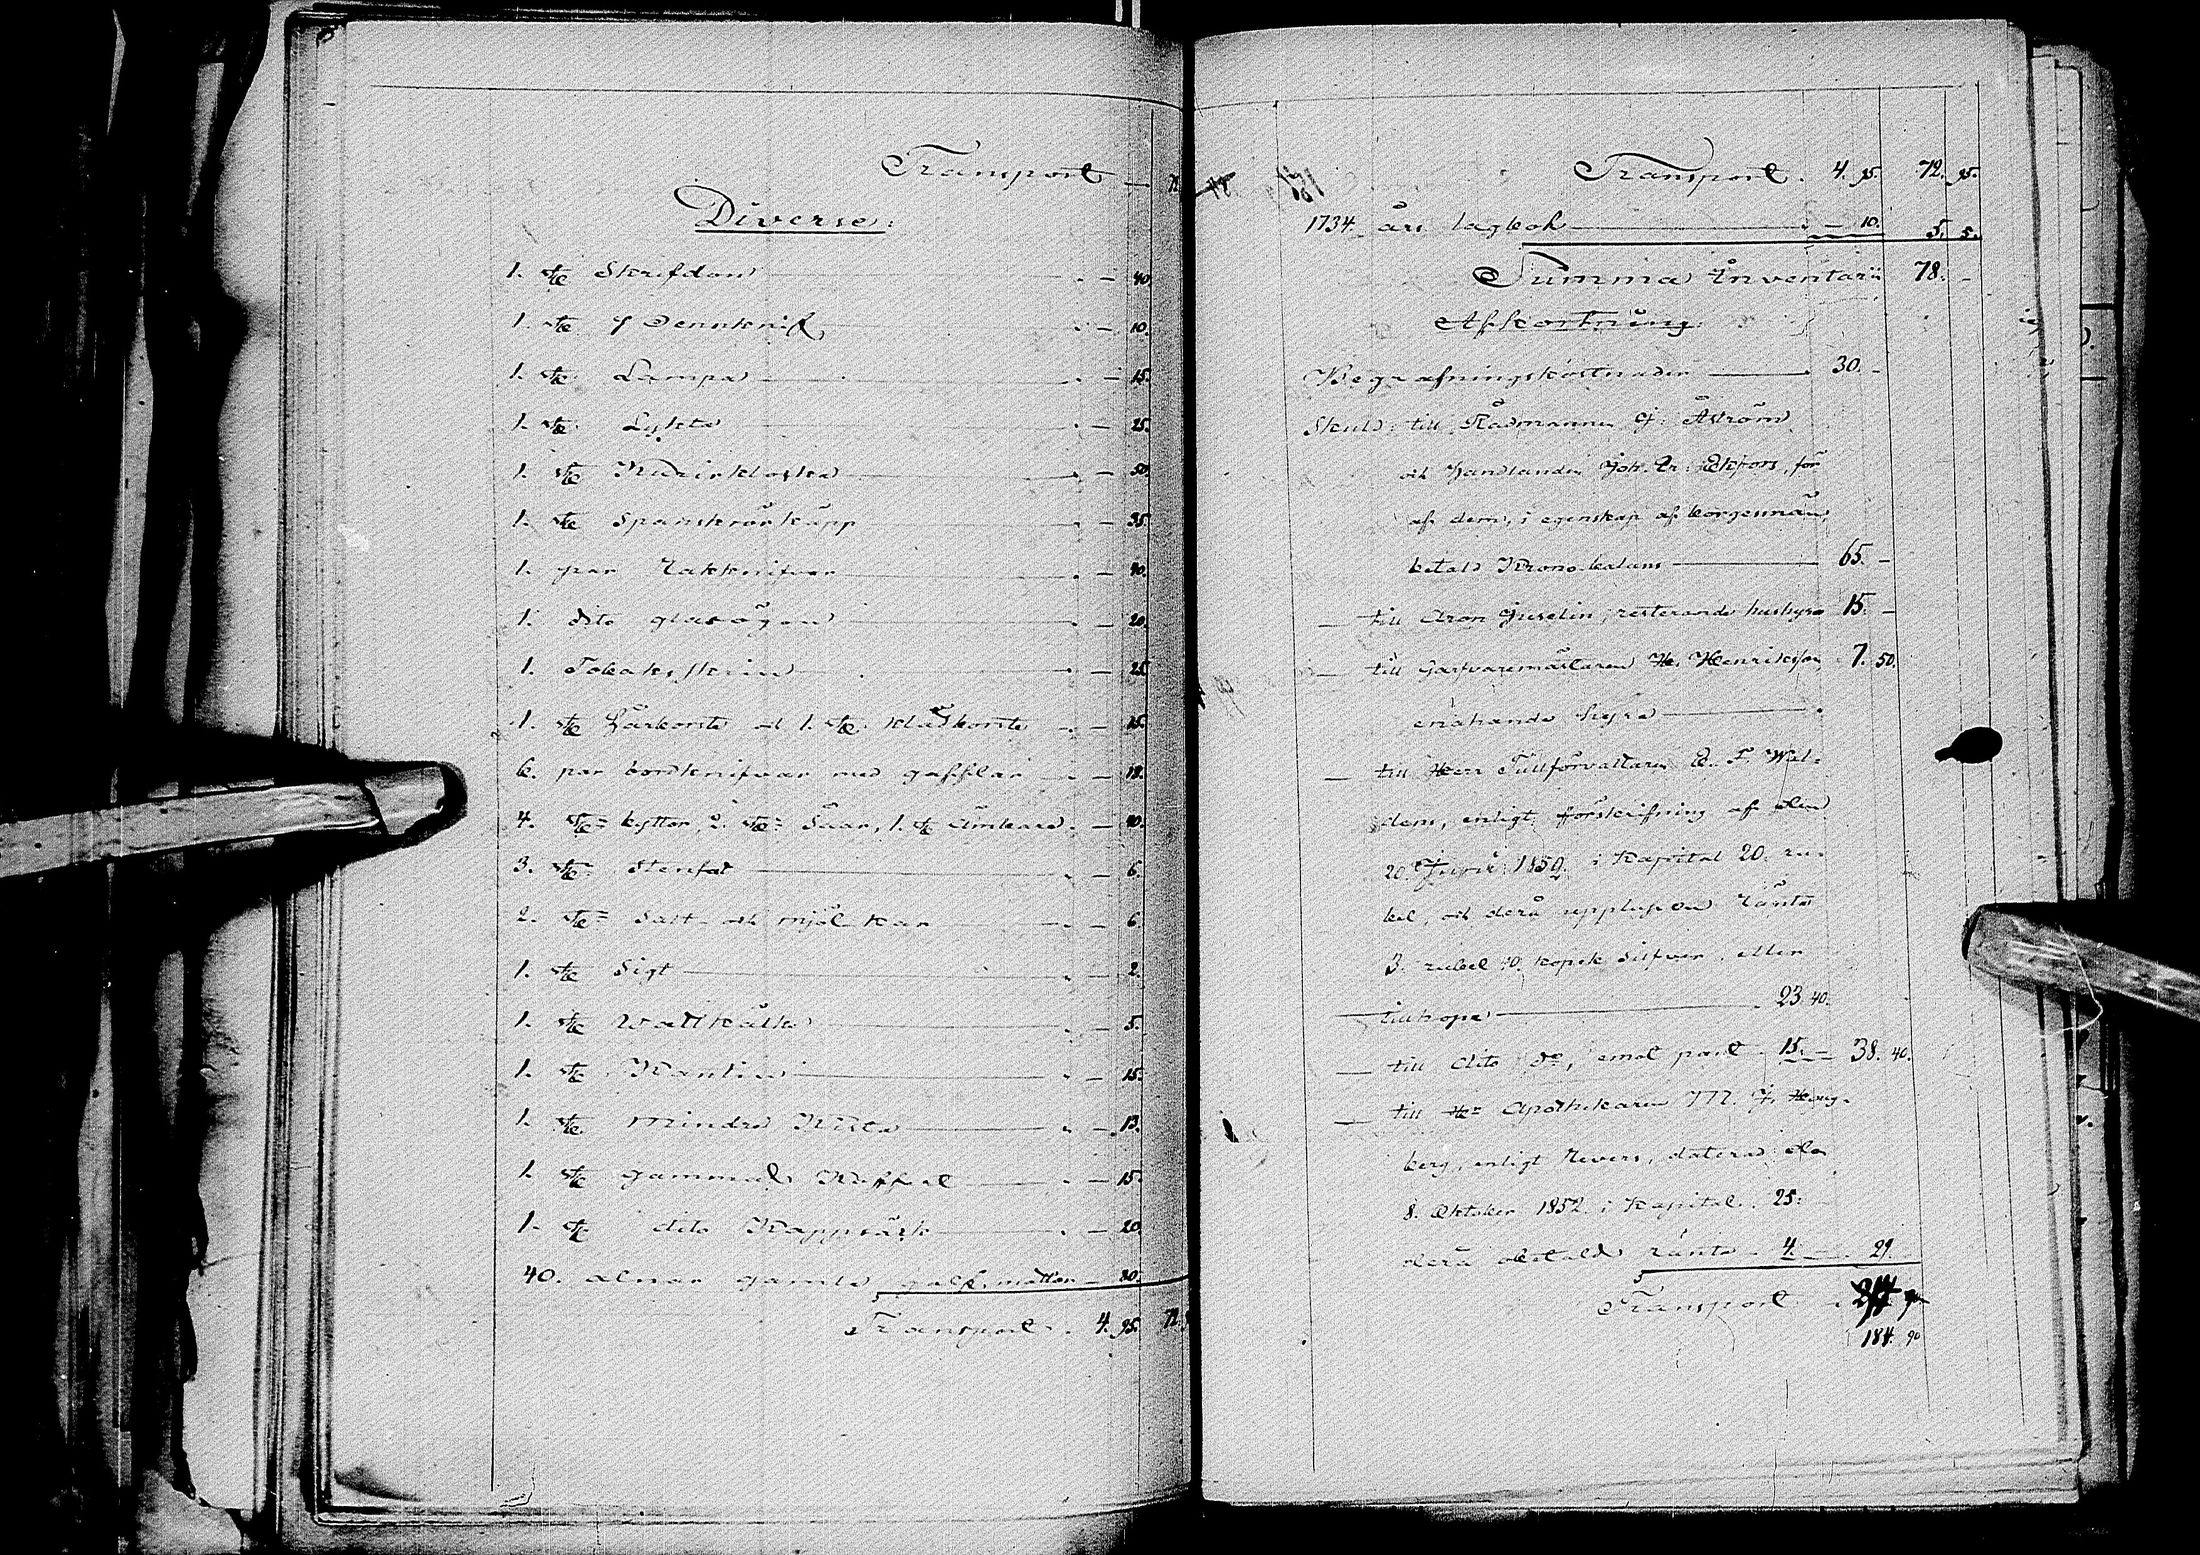 Transport — 72
Diverse:
1. st. Skrifdon — 40
1. st. Pennknif — 10.
1. st. Lampa — 15.
1. st. Lykta — 25.
1. st. — 50
1. st. Spanskrörkäpp — 35.
1. par Rakknifvar — 40.
1. dito glasögon — 20.
1. Tobaksskrin — 25
1. st. Hårborste och 1. st. klädborste — 15.
6. par bordknifvar med gafflar — 18.
4. st. byttor, 2. st. Såar, 1. st. Ämbare. — 10.
3. st. Stenfat — 6.
2. st. Salt- och mjöl kar — 6.
1. st. Sigt — 2.
1. st. — 5.
1. st. Kantin — 15.
1. st. mindre Kista — 13.
1. st. gammal Koffert — 15.
1. st. dito Kappsäck — 20.
40. alnar gamla golf mattor — 80.
Transport. 4. 95. 72. 9
Transport. 4. 95. 72. 95.
1734 års lagbok — 10. 5. 5.
Summa Inventarii 78. —
Afkortning:
Begrafningskostnader — 30. —
Skuld: till Rådmannen J. Åström
och Handlanden Joh. Er. Ekfors, för
af dem, i egenskap af borgesmän,
betald Krono balans — 65. —
— till Aron Juselin, resterande hushyra 15. —
— till Garfvaremästaren H. Henriksson 7. 50.
enahanda hyra —
— till Herr Tullförvaltaren E. F. Wal-
dem, enligt förskrifning af den
20. Junii 1850. i Kapital 20. ru-
bel, och derå upplupen ränta
3. rubel 40. kopek silfver, eller
tillhopa — 23. 40.
— till dito do, emot pant. 15. — 38. 40.
— till Hr Apothekaren M. J. Heug-
berg, enligt Revers, daterad den
8. Oktober 1852. i Kapital. 25.
derå obetald ränta — 4. — 29.
Transport
184. 90